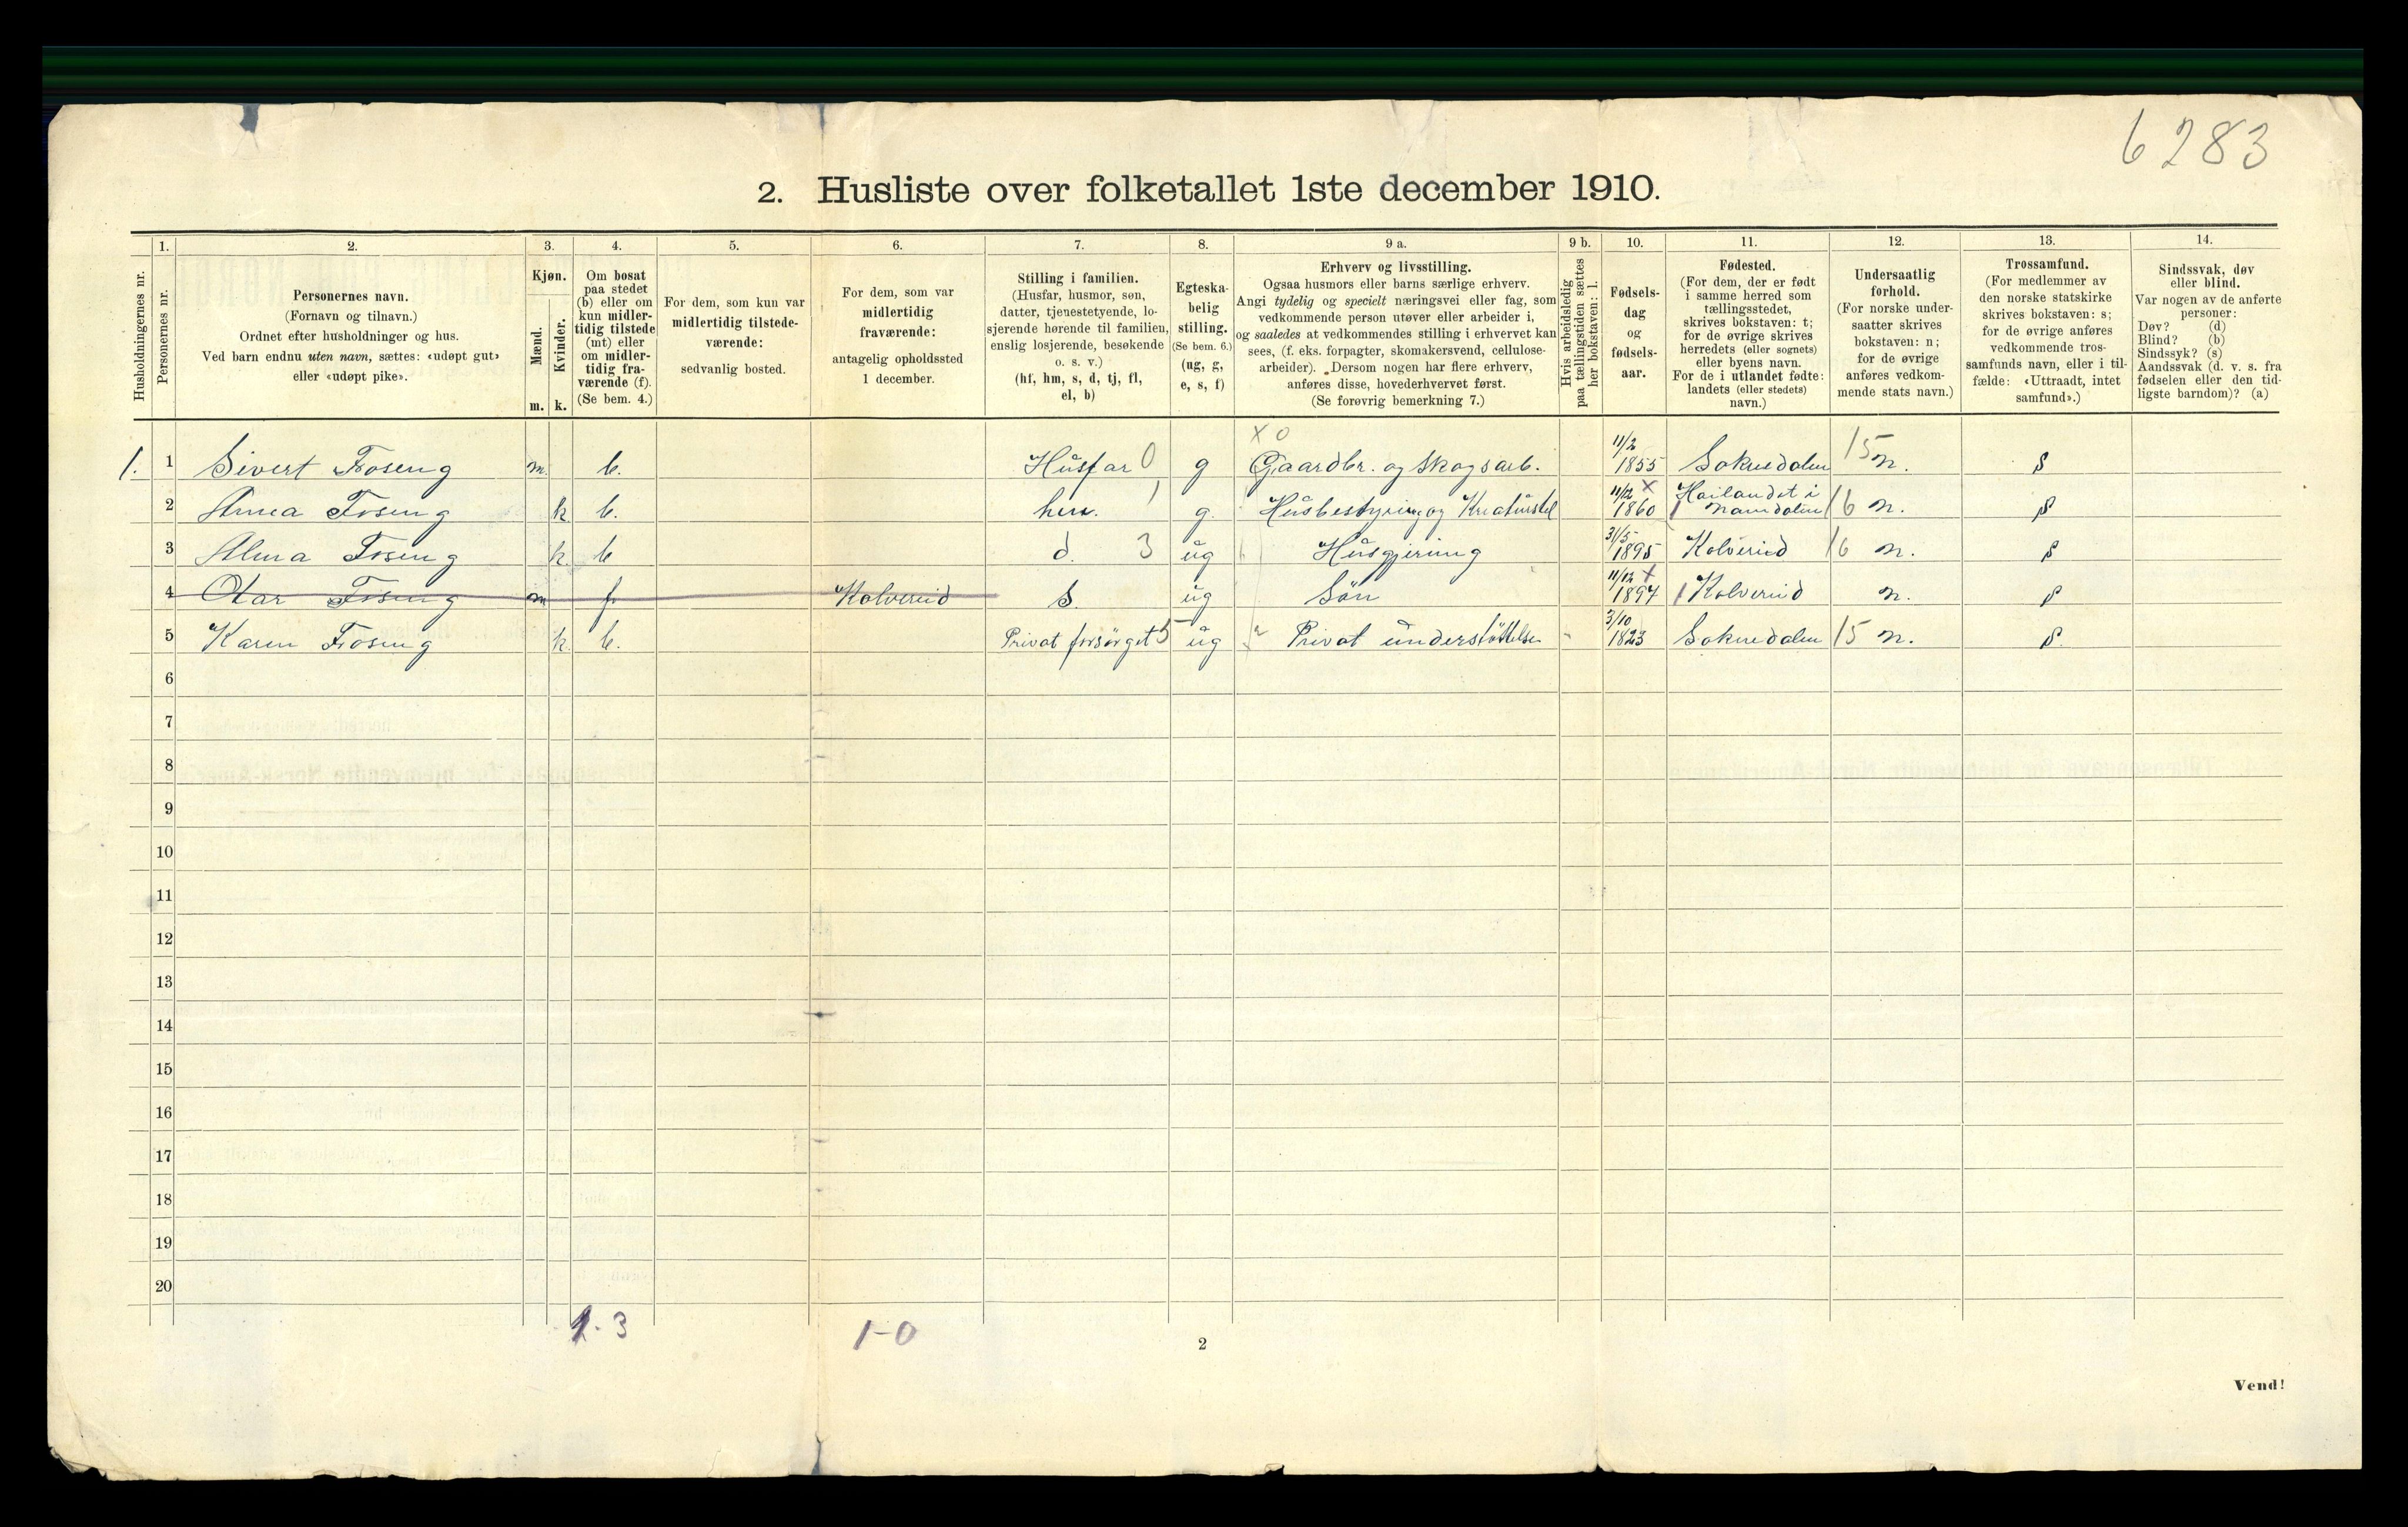 6283
2. Husliste over folketallet 1ste december 1910.
Husholdningernes nr.
1.
Personernes nr.
2.
Personernes navn.
(Fornavn og tilnavn.)
Ordnet efter husholdninger og hus.
Ved barn endnu uten navn, sættes: «udøpt gut»
eller «udøpt pike».
3.
Kjøn.
Mænd.
Kvinder.
m. k.
4.
Om bosat
paa stedet
(b) eller om
kun midler-
tidig tilstede
(mt) eller
om midler-
tidig fra-
værende (f).
(Se bem. 4.)
5.
For dem, som kun var
midlertidig tilstede-
værende:
sedvanlig bosted.
6.
For dem, som var
midlertidig
fraværende:
antagelig opholdssted
1 december.
7.
Stilling i familien.
(Husfar, husmor, søn,
datter, tjenestetyende, lo-
sjerende hørende til familien,
enslig losjerende, besøkende
o. s. v.)
(hf, hm, s, d, tj, fl,
el, b)
8.
Egteska-
belig
stilling.
(Se bem. 6.)
(ug, g,
e, s, f)
9 a.
Erhverv og livsstilling.
Ogsaa husmors eller barns særlige erhverv.
Angi tydelig og specielt næringsvei eller fag, som
vedkommende person utøver eller arbeider i,
og saaledes at vedkommendes stilling i erhvervet kan
sees, (f. eks. forpagter, skomakersvend, cellulose-
arbeider). Dersom nogen har flere erhverv,
anføres disse, hovederhvervet først.
(Se forøvrig bemerkning 7.)
9 b.
Hvis arbeidsledig
paa tællingstiden sættes
her bokstaven: l.
10.
Fødsels-
dag
og
fødsels-
aar.
11.
Fødested.
(For dem, der er født
i samme herred som
tællingsstedet,
skrives bokstaven: t;
for de øvrige skrives
herredets (eller sognets)
eller byens navn.
For de i utlandet fødte:
landets (eller stedets)
navn.)
12.
Undersaatlig
forhold.
(For norske under-
saatter skrives
bokstaven: n;
for de øvrige
anføres vedkom-
mende stats navn.)
13.
Trossamfund.
(For medlemmer av
den norske statskirke
skrives bokstaven: s;
for de øvrige anføres
vedkommende tros-
samfunds navn, eller i til-
fælde: «Uttraadt, intet
samfund».)
14.
Sindssvak, døv
eller blind.
Var nogen av de anførte
personer:
Døv? (d)
Blind? (b)
Sindssyk? (s)
Aandssvak (d. v. s. fra
fødselen eller den tid-
ligste barndom)? (a)
x 0
1. 1 Sivert Froseng m. b. Husfar 0 g Gaardbr. og Skogsarb. 11/2 1855 Soknedalen 15 n. s
2 Anna Froseng k b. hm. 1 g. Husbestyring og Kreaturstel 11/12 x 1860 Høilandet i Namdalen 16 n. s
3 Alma Froseng k. b d. 3 ug Husgjerning 31/5 1895 Kolvereid 16 n. s
4 Otar Froseng m f Kolvereid S. ug Søn 11/12 x 1897 Kolvereid n. s
5 Karen Froseng k. b. Privat forsørget 5 ug Privat understøttelse 3/10 1823 Soknedalen 15 n. s.
6
7
8
9
10
11
12
13
14
15
16
17
18
19
20
1-3 1-0
2
Vend!